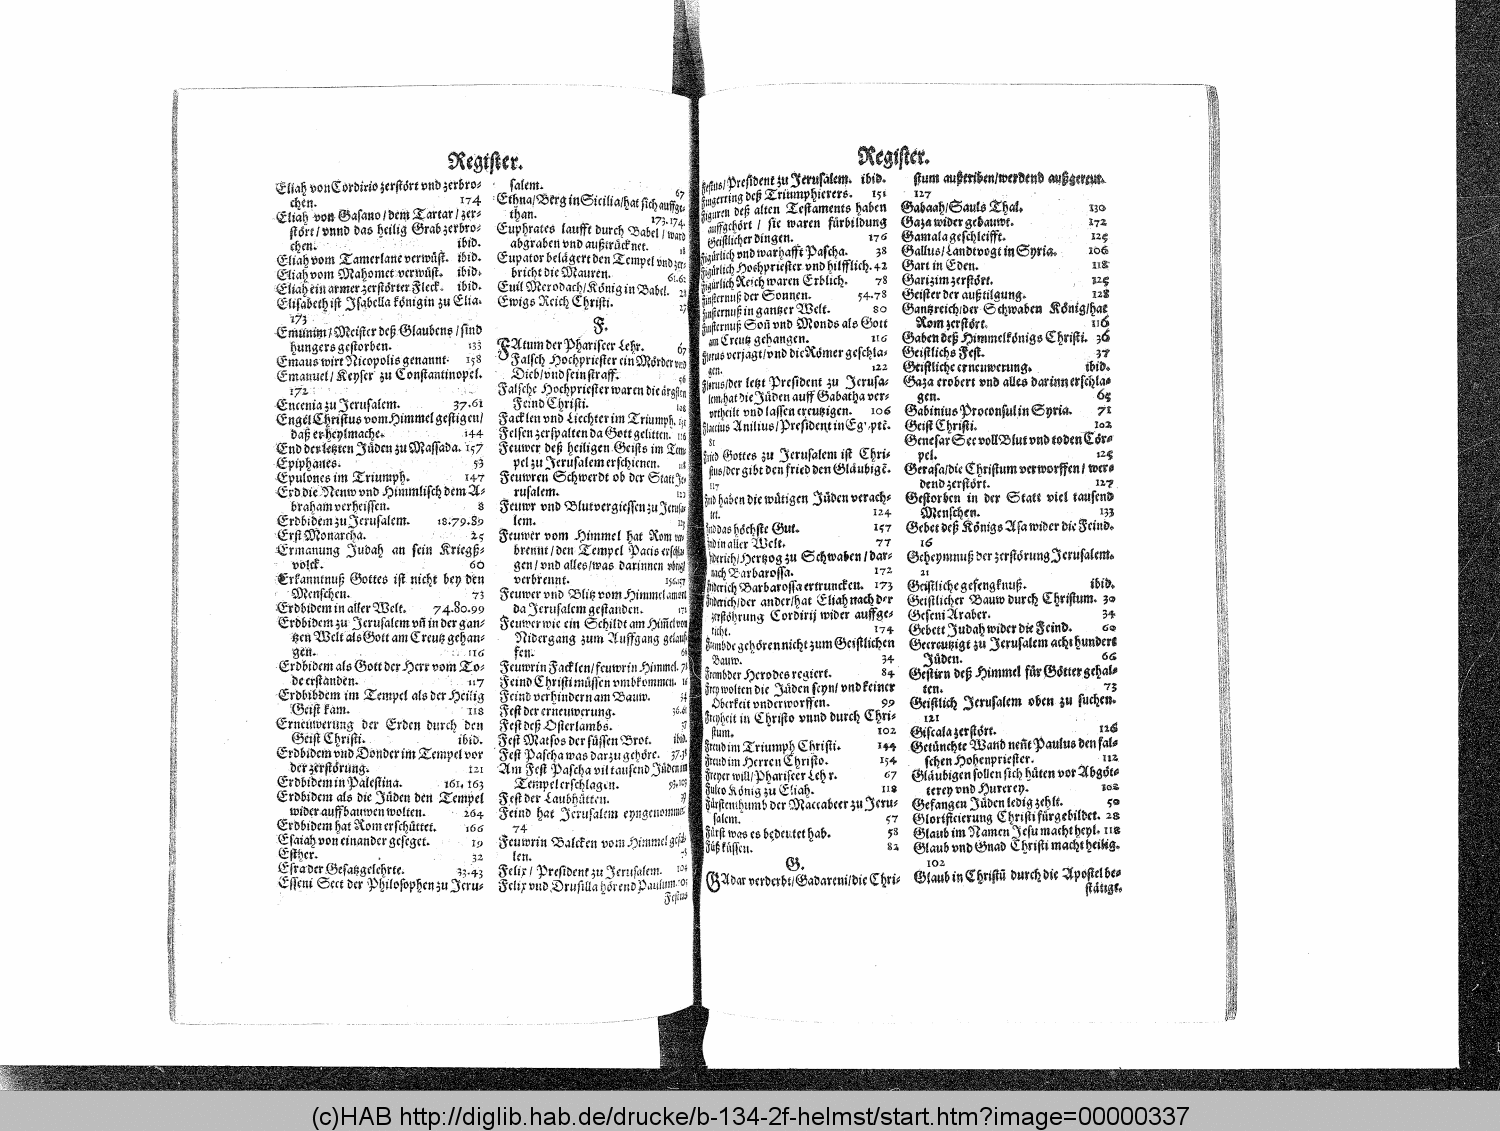 Register.
Eliah von Cordirio zerstört vnd zerbro-
chen. 174
Eliah von Gasano/dem Tartar/zer-
stört/vnnd das heilig Grab zerbro-
chen. ibid.
Eliah vom Tamerlane verwüst. ibid.
Eliah vom Mahomet verwüst. ibid.
Eliah ein armer zerstörter Fleck. ibid.
Elisabeth ist Isabella königin zu Elia.
173
Emunim/Meister deß Glaubens/sind
hungers gestorben. 133
Emaus wirt Nicopolis genannt. 158
Emanuel/Keyser zu Constantinopel.
172
Encenia zu Jerusalem. 37.61
Engel Christus vom Himmel gestigen/
daß er heylmache. 144
End der letzten Jüden zu Massada. 157
Epiphanes. 53
Epulones im Triumph. 147
Erd die Nenw vnd Himmlisch dem A-
braham verheissen. 8
Erdbidem zu Jerusalem. 18.79.89
Erst Monarcha. 25
Ermanung Judah an sein Kriegß-
volck. 60
Erkanntnuß Gottes ist nicht bey den
Menschen. 73
Erdbidem in aller Welt. 74.80.99
Erdbidem zu Jerusalem vñ in der gan-
tzen Welt als Gott am Creutz gehan-
gen. 116
Erdbidem als Gott der Herr vom To-
de erstanden. 117
Erdbibdem im Tempel als der Heilig
Geist kam. 118
Erneuwerung der Erden durch den
Geist Christi. ibid.
Erdbidem vnd Donder im Tempel vor
der zerstörung. 121
Erdbidem in Palestina. 161.163
Erdbidem als die Jüden den Tempel
wider auffbauwen wolten. 264
Erdbidem hat Rom erschüttet. 166
Esaiah von einander geseget. 19
Esther. 32
Esra der Gesatzgelehrte. 33.43
Esseni Sect der Philosophen zu Jeru-
salem. 67
Ethna/Berg in Sicilia/hat sich auffge-
than. 173.174.
Euphrates laufft durch Babel/ward
abgraben vnd außträcknet. 18
Eupator belägert den Tempel vnd zer-
bricht die Mauren. 61.62
Euil Merodach/König in Babel.
Ewigs Reich Christi.
F.
FAtum der Phariseer Lehr. 67
Falsch Hochpriester ein Mörder vnd
Dieb/vnd sein straff. 56
Falsche Hochpriester waren die ärgsten
Feind Christi.
Facklen vnd Liechter im Triumph.
Felsen zerspalten da Gott gelitten. 116
Feuwer deß heiligen Geists im Tem-
pel zu Jerusalem erschienen. 118
Feuwren Schwerdt ob der Statt Je-
rusalem.
Feuwr vnd Blutvergiessen zu Jerusa-
lem.
Feuwer vom Himmel hat Rom ver-
brennt/den Tempel Pacis
gen/vnd alles/was darinnen
verbrennt. 156.157
Feuwer vnd Blitz vom Himmel
da Jerusalem gestanden. 171
Feuwer wie ein Schildt am Him̃el von
Nidergang zum Auffgang gelauf-
fen.
Feuwrin Facklen/feuwrin Himmel.
Feind Christi müssen vmbkommen.
Feind verhindern am Bauw. 34
Fest der erneuwerung. 36.61
Fest deß Osterlambs. 37
Fest Matsos der süssen Brot. ibid.
Fest Pascha was darzu gehöre. 37.38
Am Fest Pascha vil tausend Jüden im
Tempel erschlagen. 93.103
Fest der Laubhütten.
Feind hat Jerusalem eyngenommen.
74
Feuwrin Balcken vom Himmel gefal-
len.
Felix/President zu Jerusalem. 104
Felix vnd Drusilla hörend Paulum.
Festus
Register.
Festus/President zu Jerusalem. ibid.
Fingerring deß Triumphierers. 151
Figuren deß alten Testaments haben
auffgehört/sie waren fürbildung
Geistlicher dingen. 176
Figürlich vnd warhafft Pascha. 38
Figürlich Hochpriester vnd hilfflich. 42
Figürlich Reich waren Erblich. 78
Finsternuß der Sonnen. 54.78
Finsternuß in gantzer Welt. 80
Finsternuß Soñ vnd Monds als Gott
am Creutz gehangen. 116
Florus verjagt/vnd die Römer geschla-
gen. 122
Florus/der letzt President zu Jerusa-
lem/hat die Jüden auff Gabatha ver-
vrtheilt vnd lassen creutzigen. 106
Flaccus Auilius/President in Egypte.
81
Fried Gottes zu Jerusalem ist Chri-
stus/der gibt den fried den Gläubigẽ.
117
Frid haben die wütigen Jüden verach-
tet. 124
Frid das höchste Gut. 157
Frid in aller Welt. 77
Friderich/Hertzog zu Schwaben/dar-
nach Barbarossa. 172
Friderich Barbarossa ertruncken. 173
Friderich/der ander/hat Eliah nach der
zerstöhrung Cordirij wider auffge-
richt. 174
Frömbde gehören nicht zum Geistlichen
Bauw. 34
Frembder Herodes regiert. 84
Frey wolten die Jüden seyn/vnd keiner
Oberkeit vnderworffen. 99
Freyheit in Christo vnnd durch Chri-
stum. 102
Freud im Triumph Christi. 144
Freud im Herren Christo. 154
Freyer will/Phariseer Lehr. 67
Fulco König zu Eliah. 118
Fürstenthumb der Maccabeer zu Jeru-
salem. 57
Fürst was es bedeutet hab. 58
Füß küssen. 82
G.
GAdar verderbt/Gadareni/die Chri-
stum außtriben/werdend außgereut.
127
Gabaah/Sauls Thal. 130
Gaza wider gebauwt. 172
Gamala geschleifft. 125
Gallus/Landtvogt in Syria. 106
Gart in Eden. 118
Garizim zerstört. 125
Geister der außtilgung. 128
Gantzreich/der Schwaben König/hat
Rom zerstört. 116
Gaben deß Himmelkönigs Christi. 36
Geistlichs Fest. 37
Geistliche erneuwerung. ibid.
Gaza erobert vnd alles darinn erschla-
gen. 65
Gabinius Proconsul in Syria. 71
Geist Christi. 102
Genesar See voll Blut vnd toden Cör-
pel. 125
Gerasa/die Christum verworffen/wer-
dend zerstört. 127
Gestorben in der Statt viel tausend
Menschen. 133
Gebet deß Königs Asa wider die Feind.
16
Geheymnuß der zerstörung Jerusalem.
21
Geistliche gefengknuß. ibid.
Geistlicher Bauw durch Christum. 30
Geseni Araber. 34
Gebett Judah wider die Feind. 60
Gecreutzigt zu Jerusalem acht hundert
Jüden. 66
Gestirn deß Himmel für Götter gehal-
ten. 73
Geistlich Jerusalem oben zu suchen.
121
Giscala zerstört. 126
Getünchte Wand neñt Paulus den fal-
schen Hohenpriester. 112
Gläubigen sollen sich hüten vor Abgöt-
terey vnd Hurerey. 102
Gefangen Jüden ledig zehlt. 50
Glorificierung Christi fürgebildet. 28
Glaub im Namen Jesu macht heyl. 118
Glaub vnd Gnad Christi macht heilig.
102
Glaub in Christũ durch die Apostel be-
stätigt.
(c)HAB http://diglib.hab.de/drucke/b-134-2f-helmst/start.htm?image=00000337